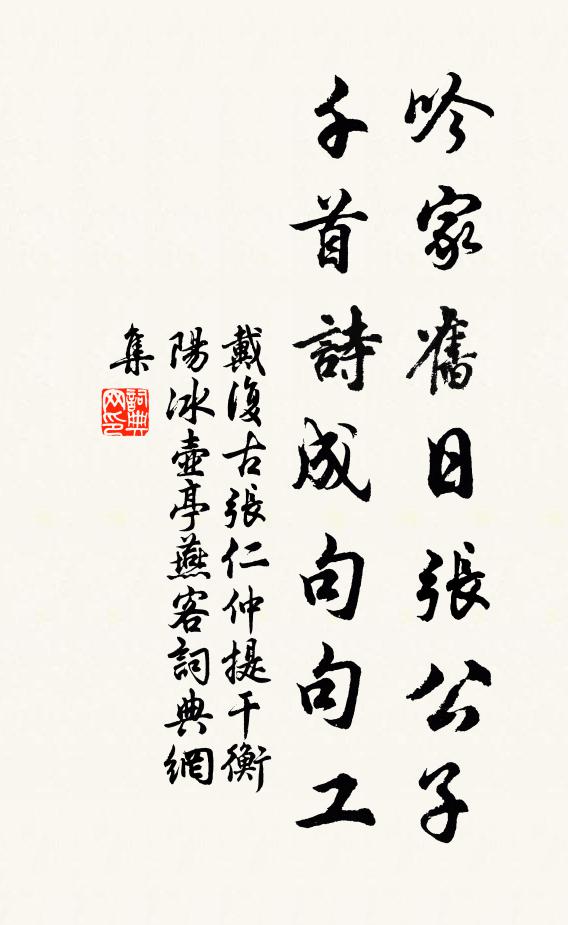 吟家舊日張公子
千首詩成句句工
戴復古張仁仲提干衡
陽冰壺亭燕客詞典網
集
詞典網印